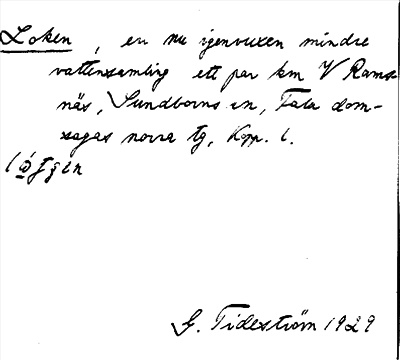 Loken, en nu igenvuxen mindre
vattensamling ett par km V Rams-
näs, Sundborns sn, Falu dom-
sagas norra tg, Kopp. l.
G. Tideström 1929